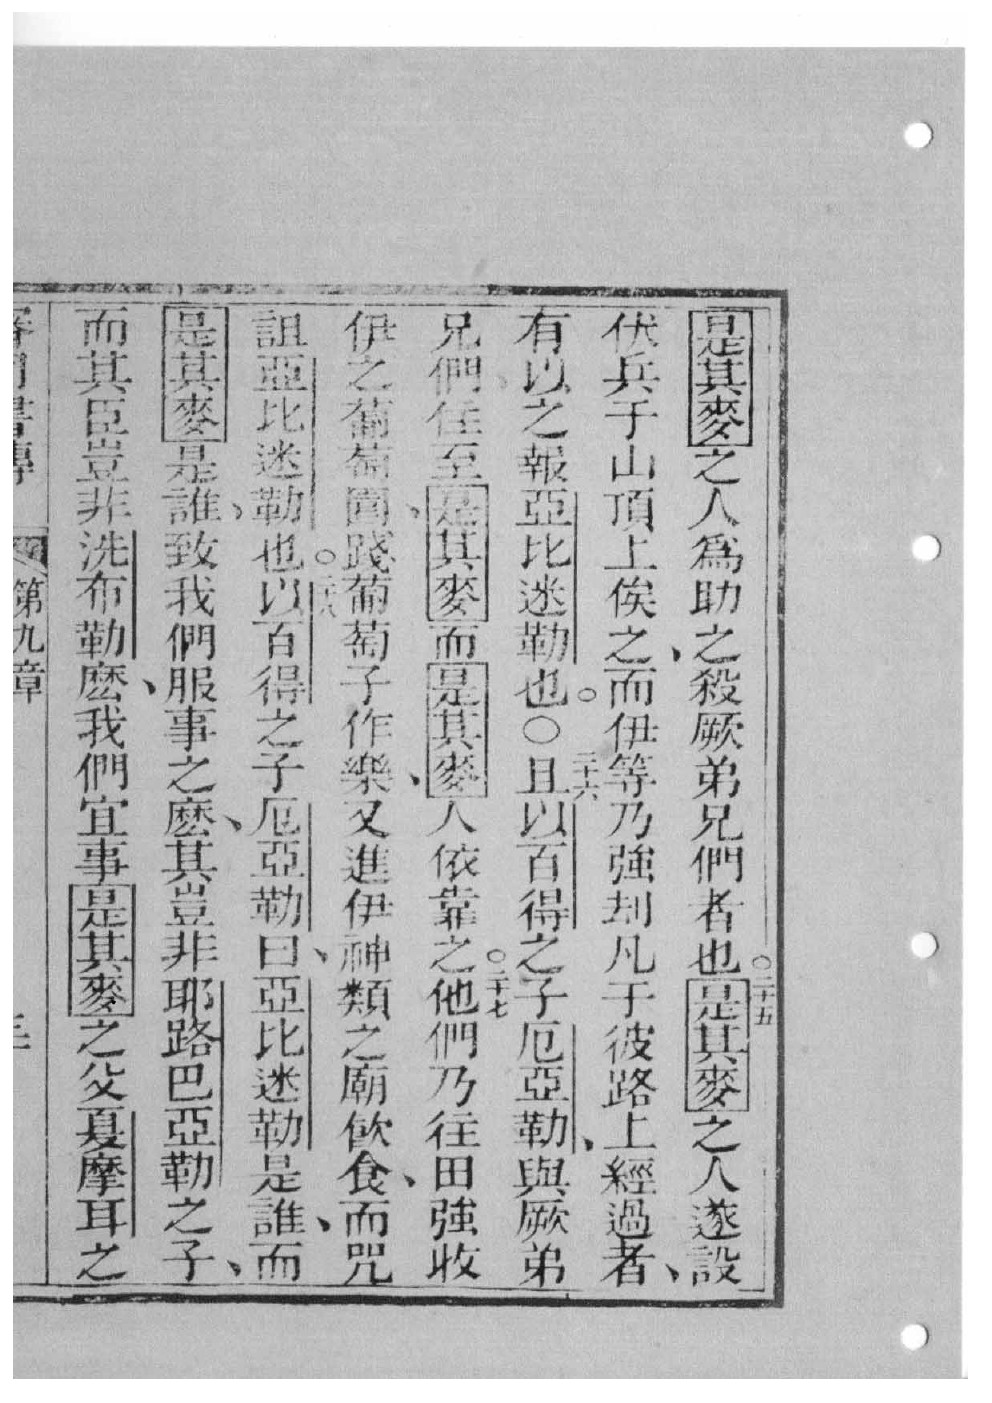 是其麥之人爲助之殺厥弟兄們者也○二十五是其麥之人遂設
伏兵于山頂上俟之、而伊等乃強刦凡于彼路上經過者、
有以之報亞比迷勒也○○二十六且以百得之子厄亞勒、與厥弟
兄們往至是其麥而是其麥人依靠之○二十七他們乃往田強收
伊之葡萄園、踐葡萄子作樂、又進伊神類之廟飲食、而咒
詛亞比迷勒也○二十八以百得之子厄亞勒曰、亞比迷勒是誰、而
是其麥是誰、致我們服事之麽、其豈非耶路巴亞勒之子、
而其臣豈非洗布勒麽、我們宜事是其麥之父夏摩耳之
書傳 第九章